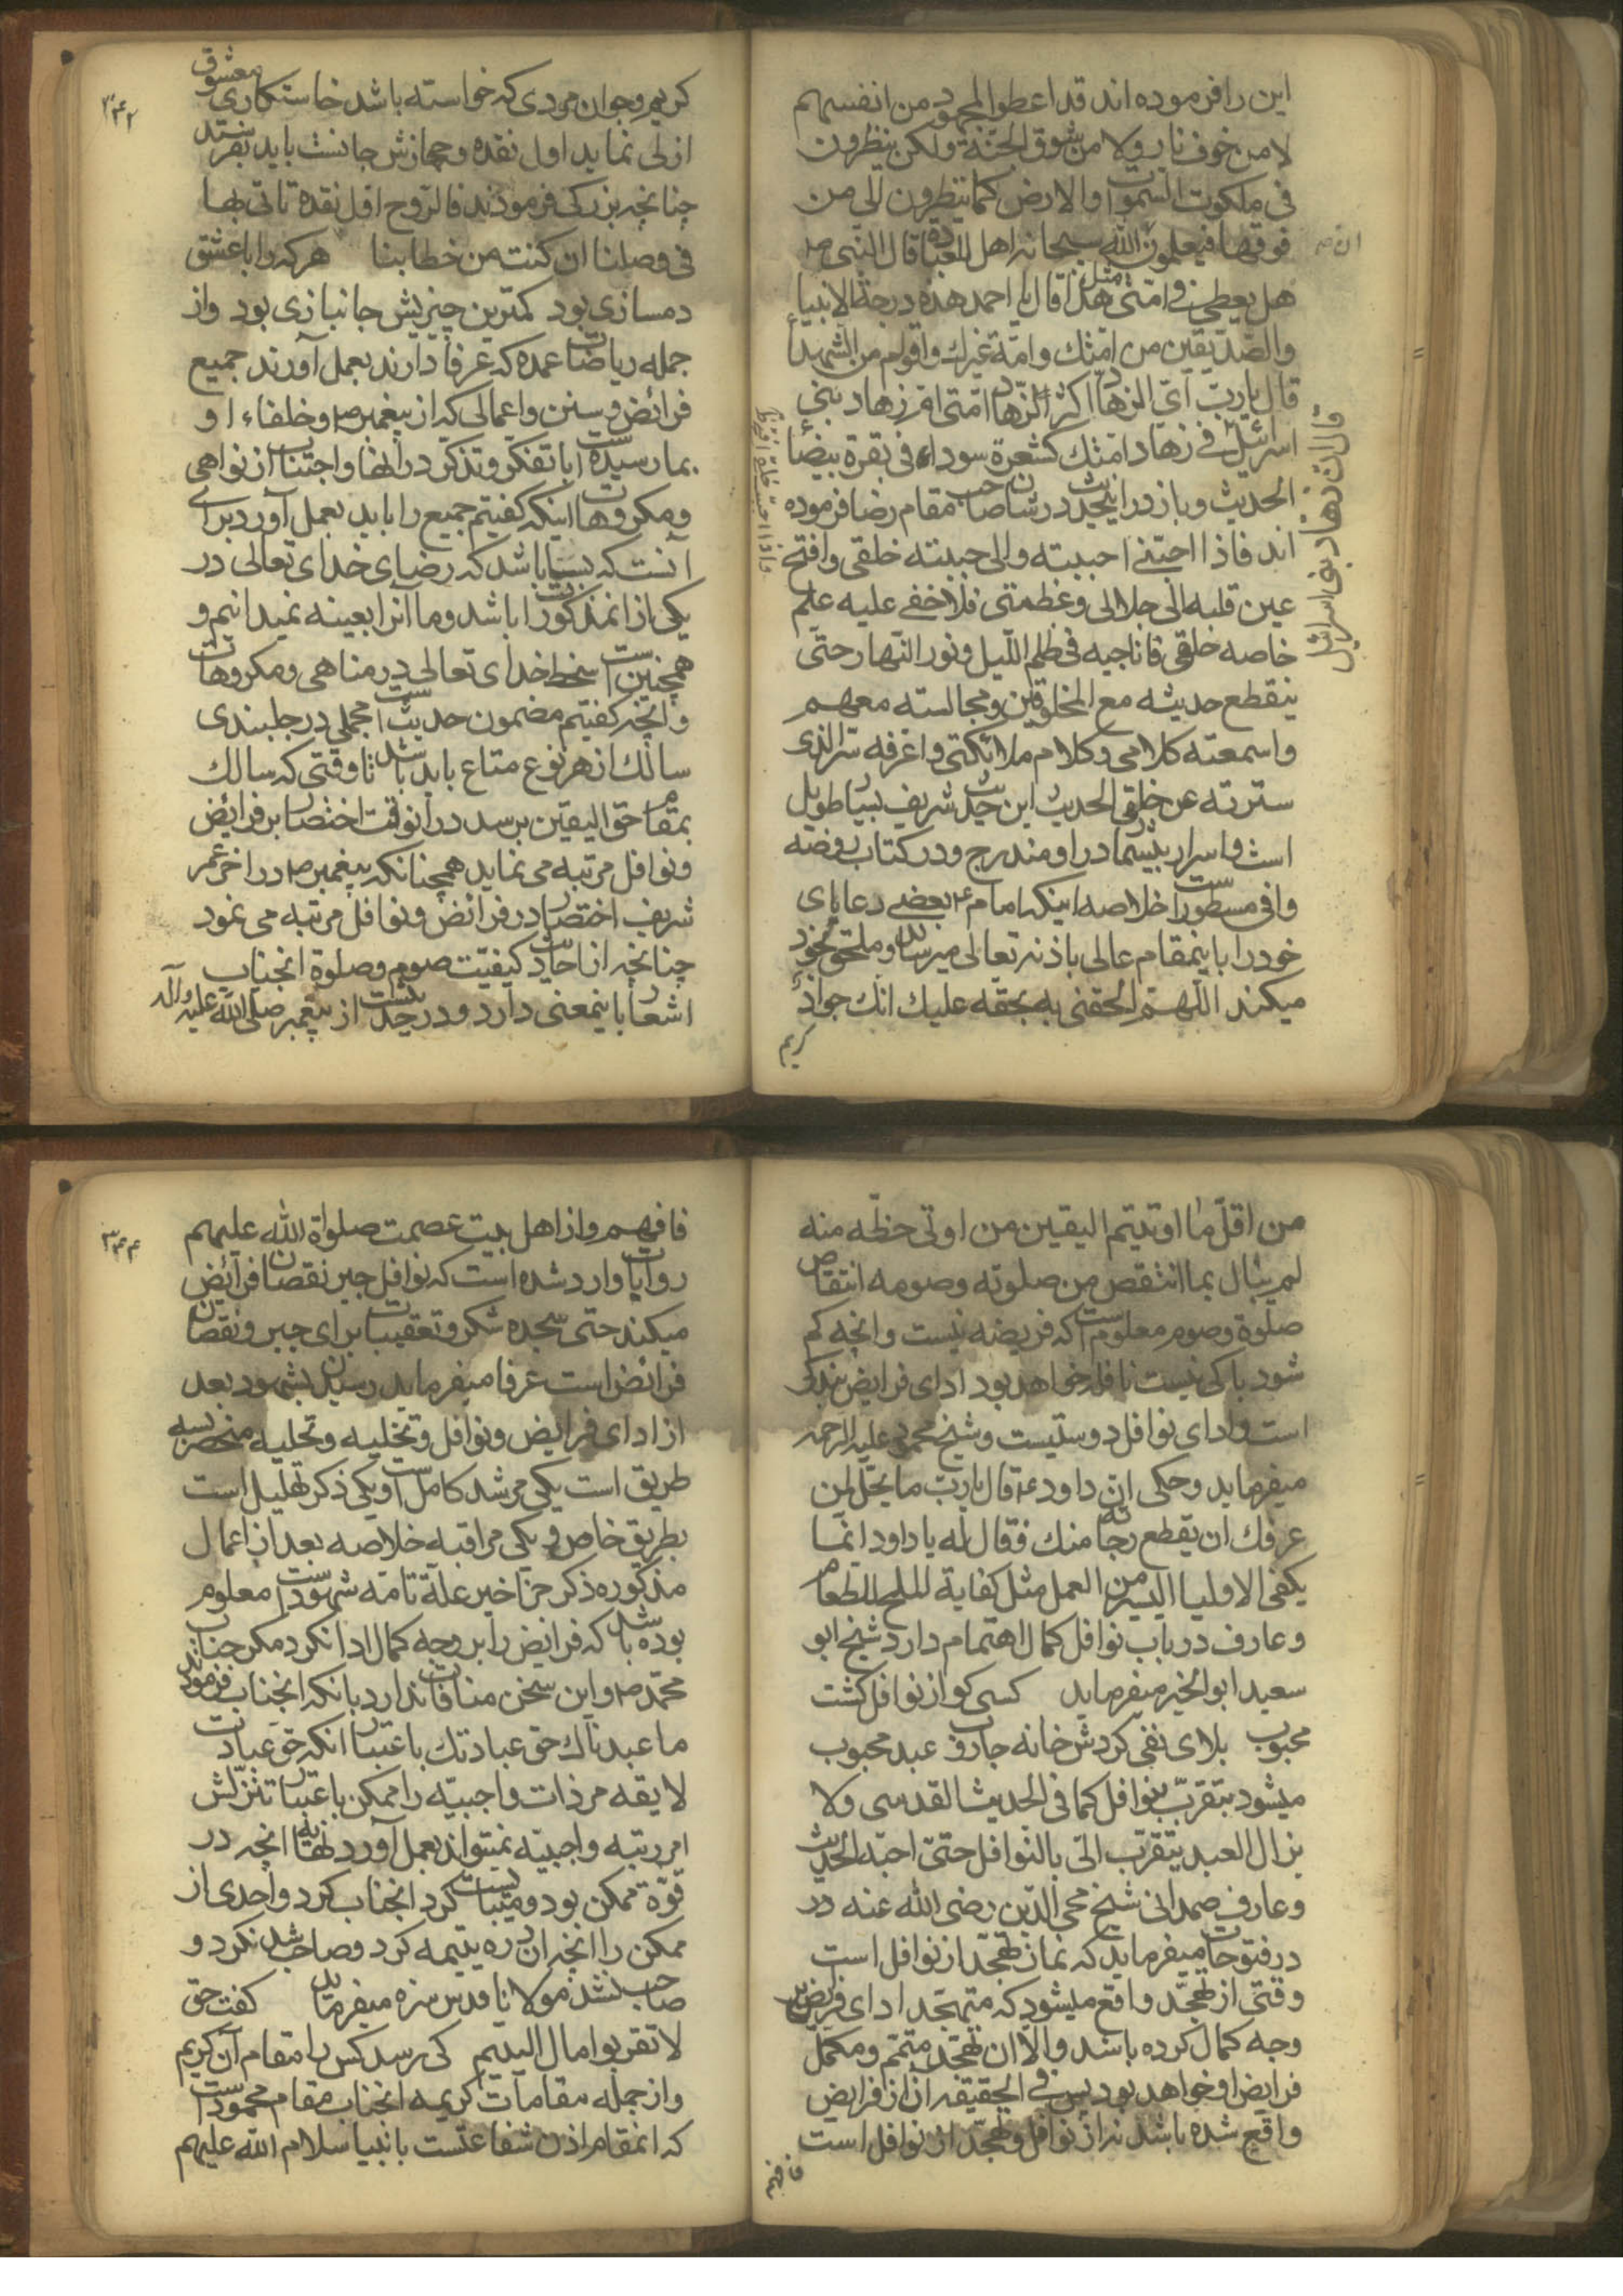 این را فرموده اند قد اعطوا المجهود من انفسهم
لا من خوف نار ولا من شوق الجنّة ولکن ینظرون
فی ملکوت السموات والارض کما ینظرون الی من
فوقها فیعلمون الله سبحانه اهل للعباده قال النبی ص
هل یعطی فی امتی مثل هذا قال یا احمد هذه درجة الانبیا
والصّدیقین من امتک وامّة غیرک واقوام من الشهدا
قال یارب ایّ الزهاد اکثر الزهاد امّتی ام زهاد بنی
اسرائیل فی زهاد امتک کشعرة سوداء فی بقرة بیضا
قال ان زهاد بنی اسرائیل
الحدیث وباز در اینحدیث در شان صاحب مقام رضا فرموده
اند فاذا احبّنی احببته والی حببته خلقی وافتح
عین قلبه الی جلالی وعظمتی فلا اخفی علیه علم
خاصه خلقی فاناجیه فی ظلم اللّیل ونور النّهار حتی
ینقطع حدیثه مع المخلوقین ومجالسته معهم
واسمعته کلامی وکلام ملائکتی واعرفه سّر الذی
سترته عن خلقی الحدیث این حدیث شریف بسیار طویل
است واسرار بیشمار در او مندرج ودر کتاب روضه
وافی مسطور است خلاصه اینکه امام ع بعضی رعایای
خود را باینمقام عالی باذنه تعالی میرساند وملحق بخود
میکند اللّهمّ الحقنی به بحقه علیک انک جواد
کریم
۳۴۳
کریم وجوان مردی که خواسته باشد خاستکاری معشوق
ازلی نماید اول نقده وجهازش جانست باید بفرستد
چنانچه بزرکی فرمودند فالرّوح اول نقدة تاتی بها
فی وصلنا ان کنت من خطابنا هر که را با عشق
دمسازی بود کمترین چیزیش جانبازی بود واز
جمله ریاضات عمده که عرفا دارند بعمل آورند جمیع
فرائض وسنن واعمالی که از پیغمبر ص وخلفاء او
بما رسیده است با تفکر وتذکر در انها واجتناب از نواهی
ومکروهات اینکه کفتیم جمیع را باید بعمل آورد برای
آنست که بسیار باشد که رضای خدای تعالی در
یکی از انمذکورات باشد وما آنرا بعینه نمیدانیم و
همچنین است سخط خدای تعالی در مناهی ومکروهات
وانچه کفتیم مضمون حدیث است مجملی در جلبندی
سالک از هر نوع متاع باید باشد تا وقتی که سالک
بمقام حق الیقین برسد در انوقت اختصار بر فرائض
ونوافل مرتبه می نماید همچنانکه پیغمبر ص در اخر عمر
شریف اختصار در فرائض ونوافل مرتبه می نمود
چنانچه از احادیث کیفیّت صوم وصلوة انجناب
اشعار باینمعنی دارد ودر حدیث است از پیغمبر صلی الله علیه وآله
من اقلّ ما اوتیتم الیقین من اوتی حظّه منه
لم یبال بما انتقص من صلوته وصومه انتقاص
صلوة وصوم معلوم است که فریضه نیست وانچه کم
شود باکی نیست نافله خواهد بود ادای فرایض بندکی
است وادای نوافل دوستیست وشیخ محمود علیه الرحمه
میفرماید وحکی ان داود ع قال یارب ما یحلّ لمن
عرفک ان یقطع رجائه منک فقال له یا داود انما
یکفی الاولیا الیسیر من العمل مثل کفایة الملح للطعام
وعارف در باب نوافل کمال اهتمام دارد شیخ ابو
سعید ابو الخیر میفرماید کسی کو از نوافل کشت
محبوب بلای نفی کردش خانه جاروب عبد محبوب
میشود بتقرّب بنوافل کما فی الحدیث القدسی ولا
یزال العبد یتقرّب الیّ بالنّوافل حتیّ احبّه الحدیث
وعارف صمدانی شیخ محی الدّین رضی الله عنه در
در فتوحات میفرماید که نماز تهجّد از نوافل است
وقتی از تهجّد واقع میشود که متهجّد ادای فرایض بر
وجه کمال کرده باشد والّا ان تهجّد متمّم ومکمّل
فرایض او خواهد بود پس فی الحقیقه ان از فرایض
واقع شده باشد نه از نوافل وتهجّد از نوافل است
فافهم
۳۴۴
فافهم واز اهل بیت عصمت صلواة الله علیهم
روایات وارد شده است که نوافل جبر نقصان فرائض
میکند حتی سجده شکر وتعقیبات برای جبر ونقصان
فرائض است عرفا میفرماید رسیدن بشهود بعد
از ادای فرایض ونوافل وتخلیه وتحلیه منحصر بسه
طریق است یکی مرشد کامل است ویکی ذکر تهلیل است
بطریق خاص ویکی مراقبه خلاصه بعد از اعمال
مذکوره ذکر جزء اخیر علة تامّه شهود است معلوم
بوده باشد که فرایض را بر وجه کمال ادا نکرد مکر جناب
محمّد ص واین سخن منافات ندارد بانکه انجناب فرمودند
ما عبدناک حق عبادتک باعتبار انکه حق عبادت
لایقه مر ذات واجبیّه را ممکن باعتبار تنزّلش
از رتبه واجبیّه نمیتواند بعمل آورد نهایه انچه در
قوّة ممکن بود ومیبایست کرد انجناب کرد واحدی از
ممکن را انچه ان درّه یتیمه کرد وصاحب شد نکرد و
صاحب نشد مولانا قدس سره میفرماید کفت حق
لا تقربوا مال الیتیم کی رسد کس را مقام آن کریم
واز جمله مقامات کریمه انجناب مقام محمود است
که انمقام اذن شفاعتست بانبیا سلام الله علیهم